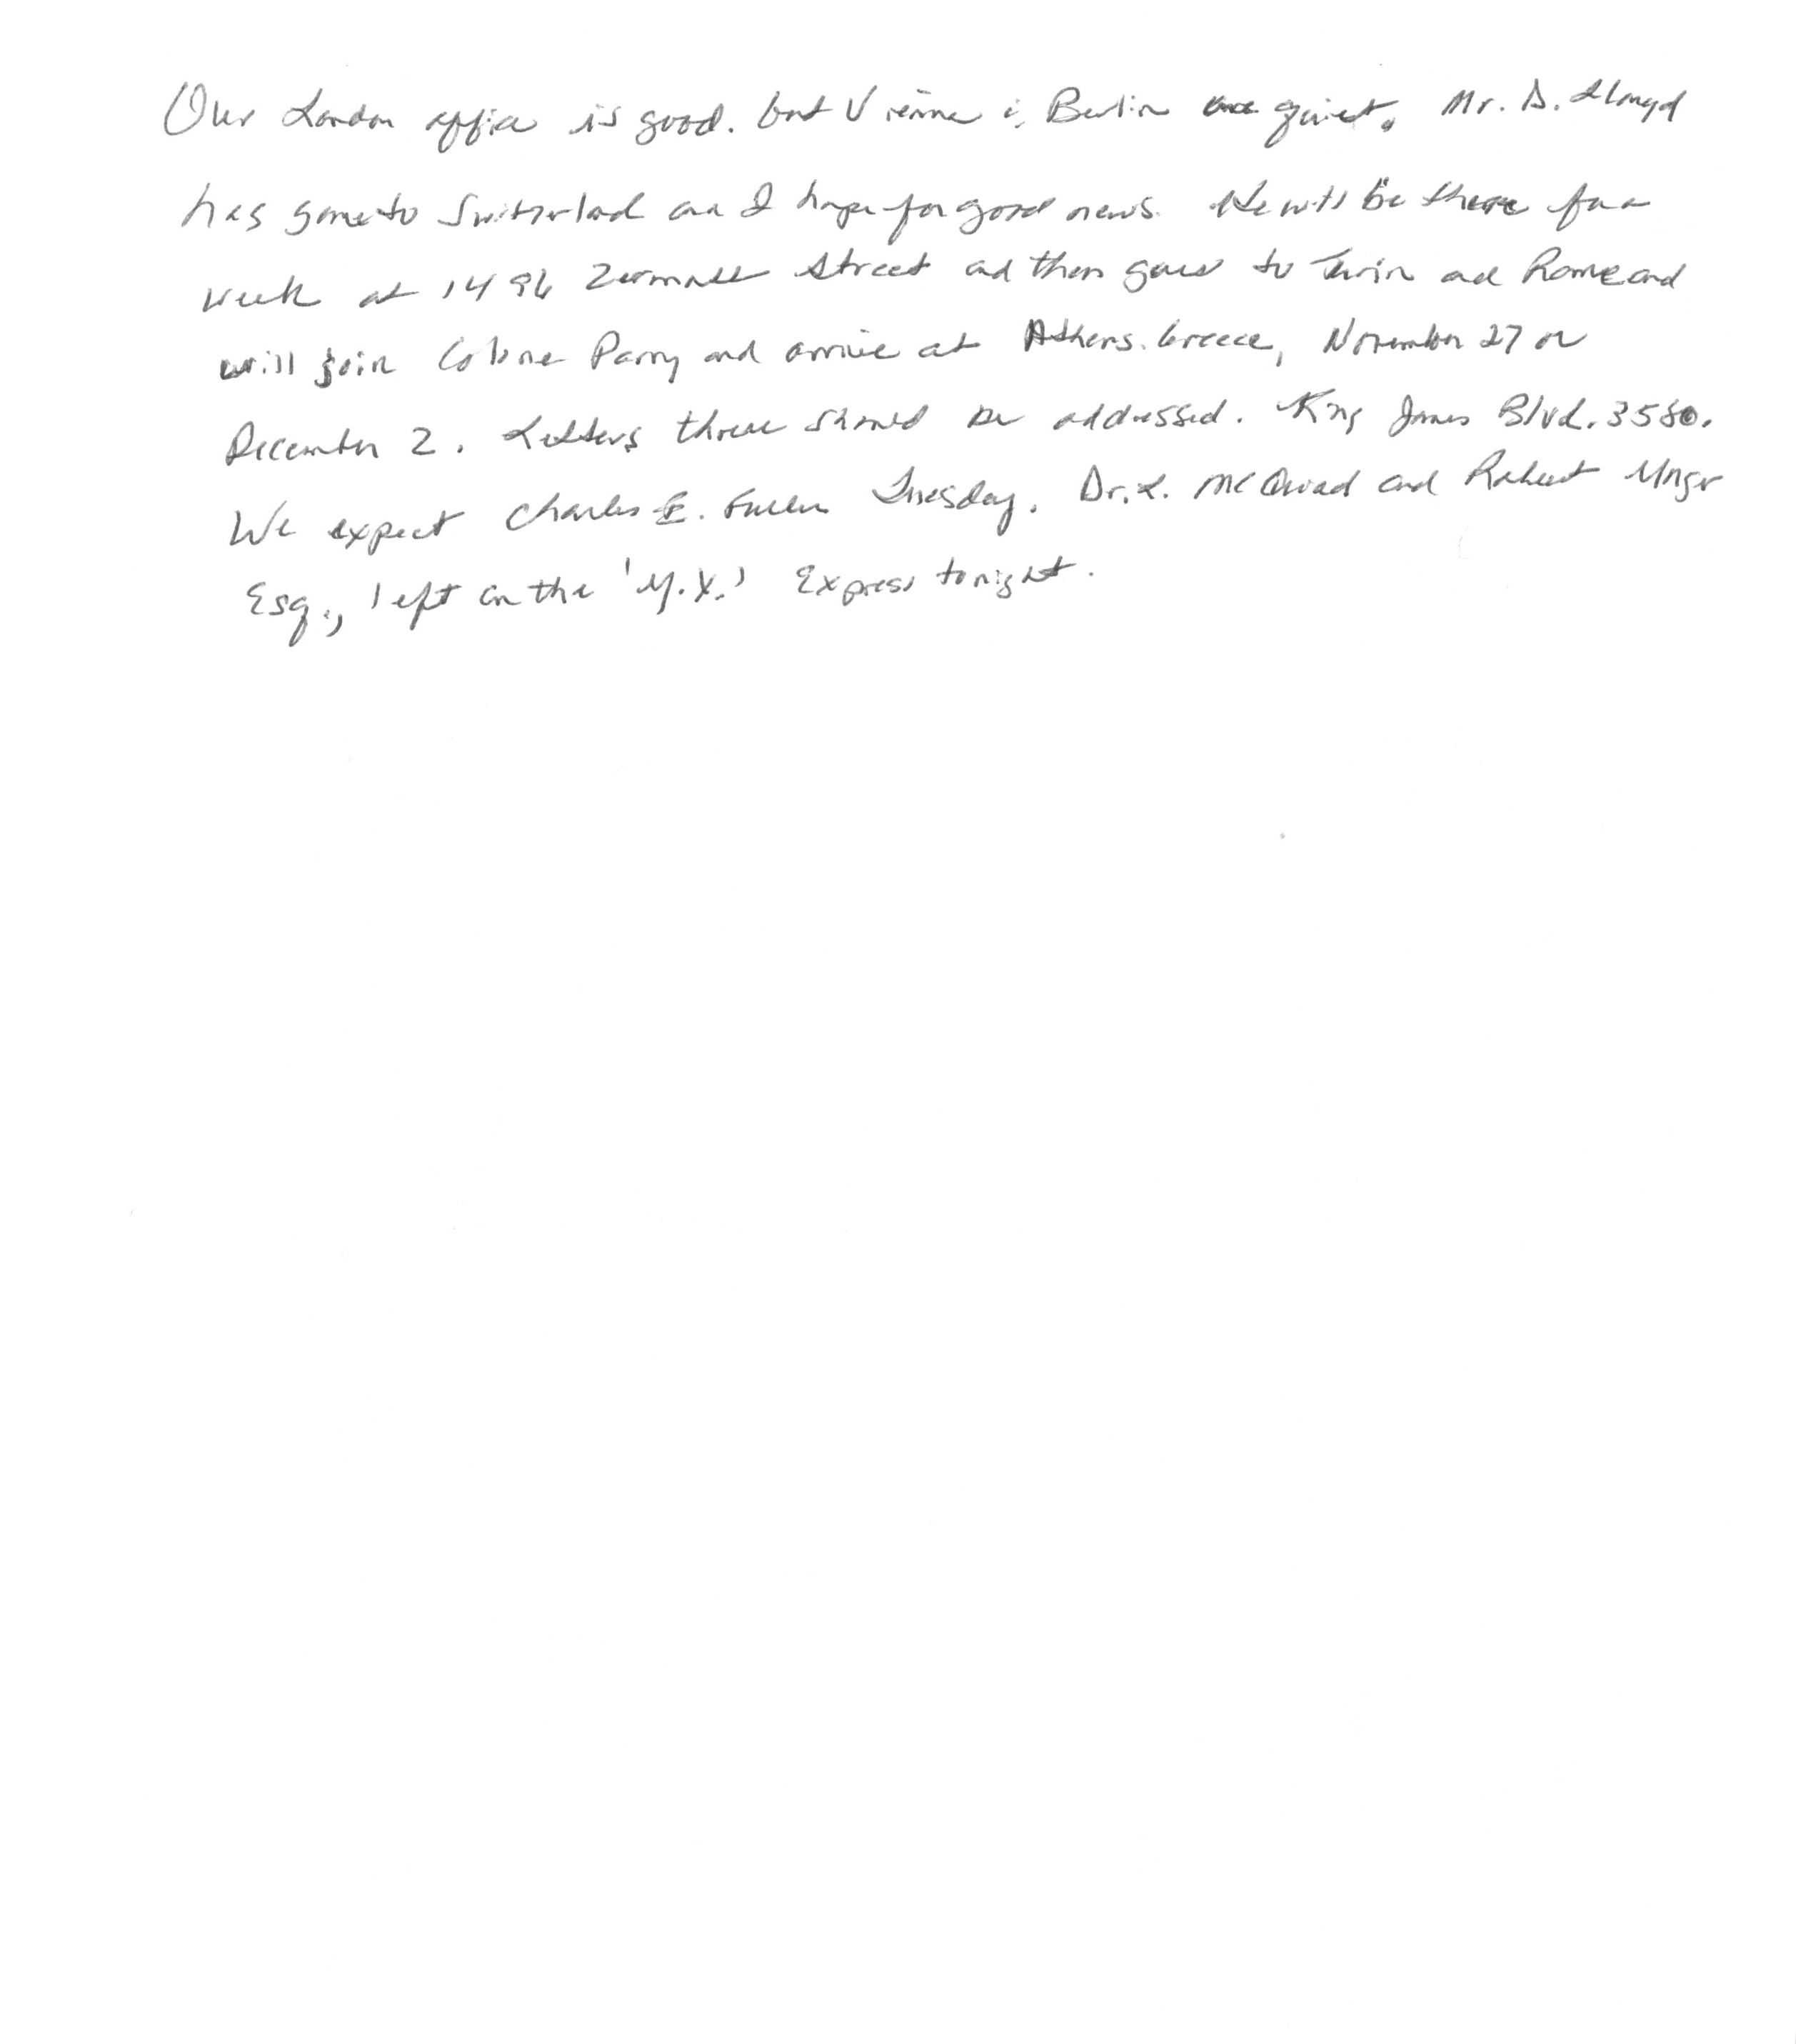 Our London office is good. but Vienna & Berlin are quiet. Mr. D. Lloyd
has gone to Switzerland and I hope for good news. He will be there for a
week at 1496 Zermatt Street and then goes to Turin and Rome and
will join Colone Parry and arrive at Athens. Greece, November 27 or
December 2. Letters there should be addressed. King James Blvd. 3580.
We expect Charles E. Fuller Tuesday. Dr. L. McQuad and Robert Unger
Esq., left on the 'Y.X.' Express tonight.